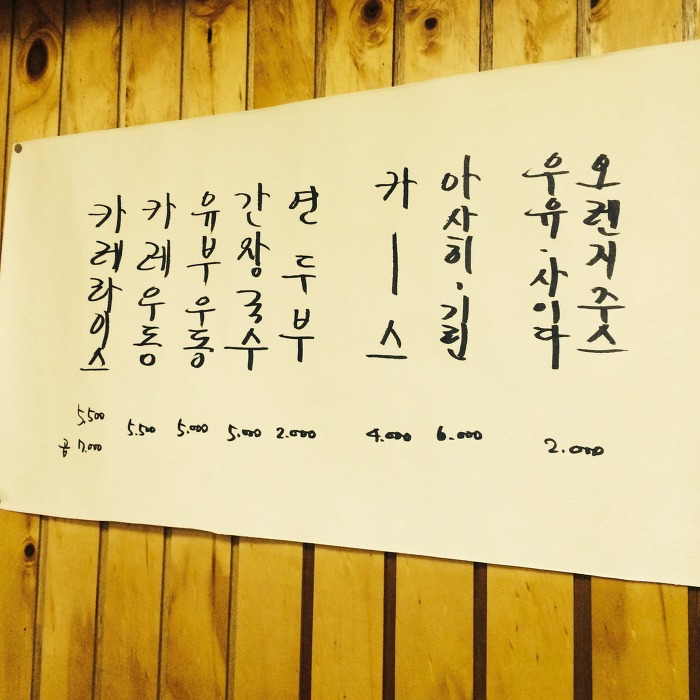 오렌지주스
우유·사이다
2.000
아사히·기린
6.000
카ㅡ스
4.000
연두부
2.000
간장국수
5.000
유부우동
5.000
카레우동
5.500
카레라이스
5,500
곱 7.000